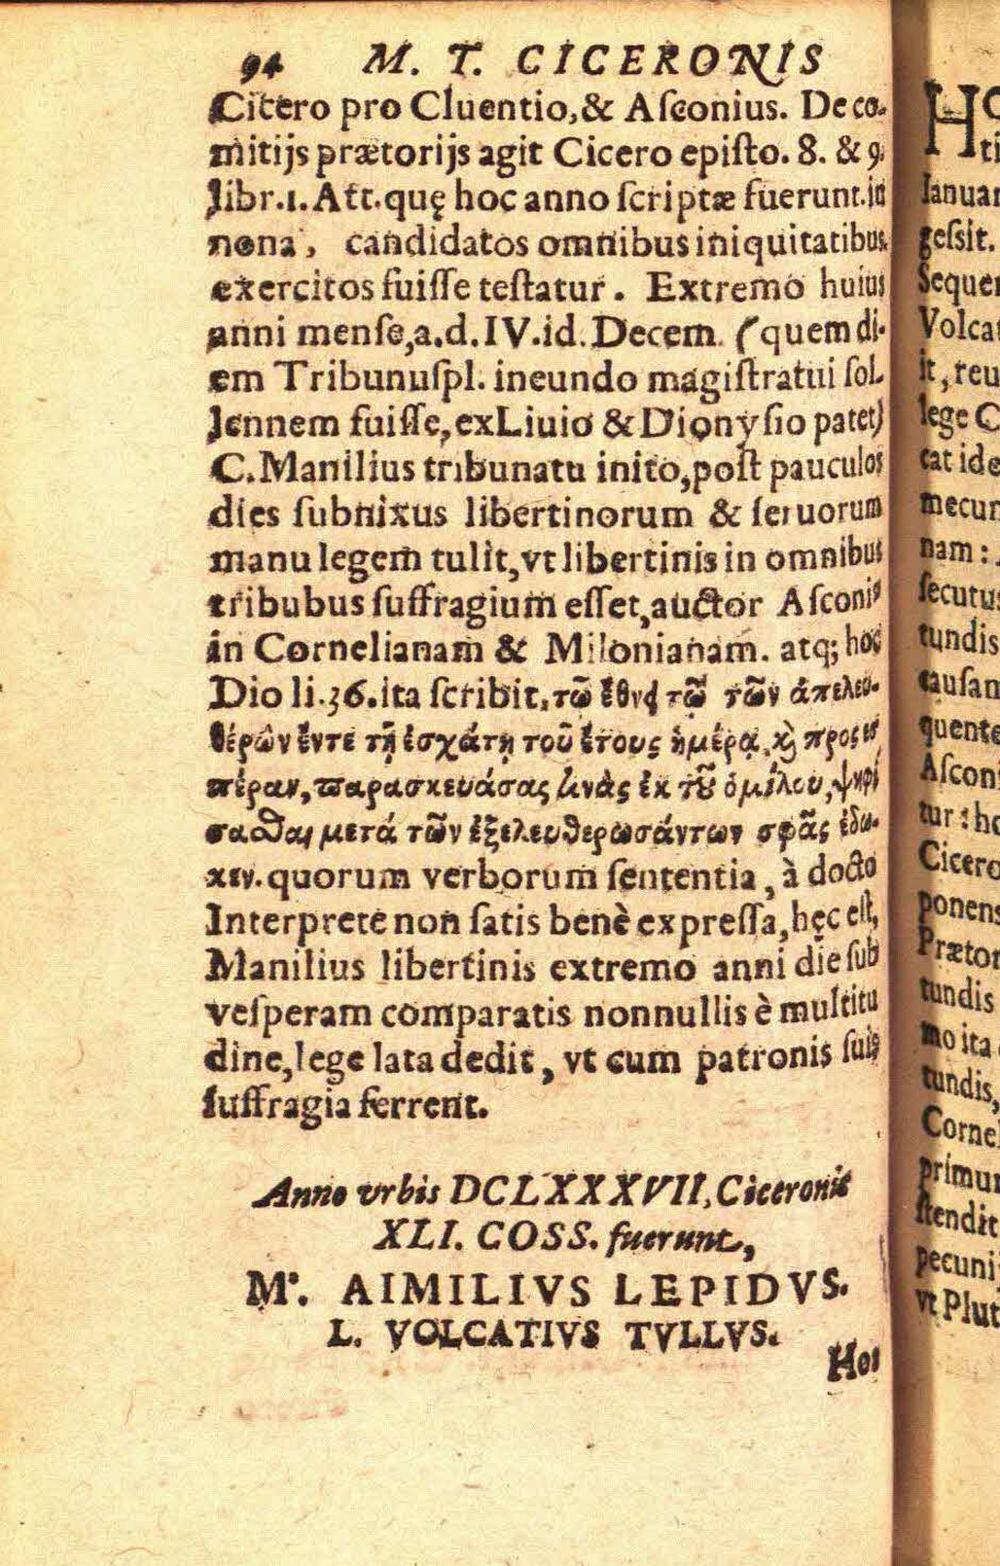 94 M. T. CICERONIS
Cicero pro Cluentio,& Aſconius. De co-
mitijs prætorijs agit Cicero epiſto. 8. & 9.
libr.1. Att.quę hoc anno ſcriptæ fuerunt.in
nona, candidatos omnibus iniquitatibus
exercitos fuiſſe teſtatur. Extremo huius
anni menſe,a.d.IV.id.Decem. (quem di-
em Tribunuſpl. ineundo magiſtratui ſol-
lennem fuiſſe,ex Liuio & Dionyſio patet)
C.Manilius tribunatu inito,poſt pauculos
dies ſubnixus libertinorum & ſeruorum
manu legem tulit,vt libertinis in omnibus
tribubus ſuffragium eſſet,auctor Aſconiꝰ
in Cornelianam & Milonianam. atq; hoc
Dio li.36.ita ſcribit, τῶ ἔθνϥ τῶ τῶν ἀπελευ-
θέρων ἔντε τῇ ἐσχάτῃ τοῦ ἔτους ἡμέρᾳ, ϗ προς
πέραν, παρασκευάσας τινὰς ἐκ τȣ͂ ὁμίλου, ψηφί
σαϑαι μετά τῶν ἐξελευθερωσάντων σφᾶς ἔδω-
κεν. quorum verborum ſententia, à docto
Interprete non ſatis benè expreſſa,hęc eſt,
Manilius libertinis extremo anni die ſub
veſperam comparatis nonnullis è multitu
dine,lege lata dedit, vt cum patronis ſuis
ſuffragia ferrent.
Anno vrbis DCLXXXVII, Ciceronis
XLI. COSS. fuerunt,
M'. AIMILIVS LEPIDVS.
L. VOLCATIVS TVLLVS.
Hos
Ianuar
geſsit.
Seque
Volca
it, reu
lege C
tat ide
mecu
nam:
ſecutu
tundis
cauſam
quente
Aſcon
tur: ho
Cicero
ponens
Prætor
tundis
mo ita
tundis,
Corne
primu
ſtendit
pecuni
vt Plut